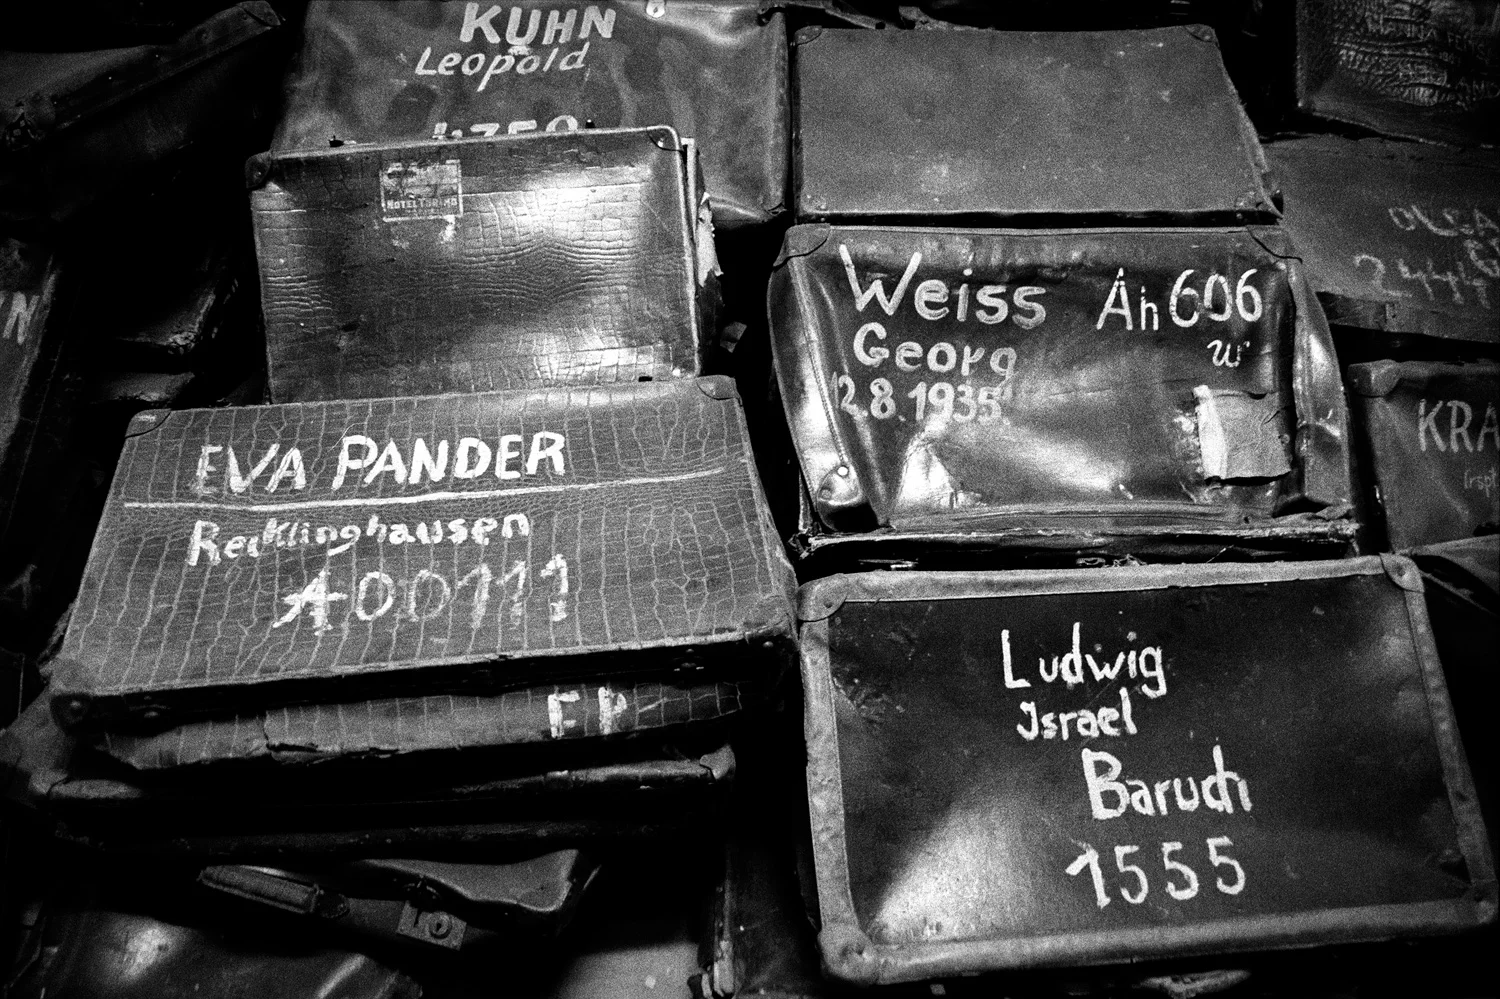 KUHN
Leopold
HOTEL
Weiss Ah 606
Georg w
12.8.1935
EVA PANDER
Recklinghausen
A00111
EP
Ludwig
Israel
Baruch
1555
OLGA
244
KRA